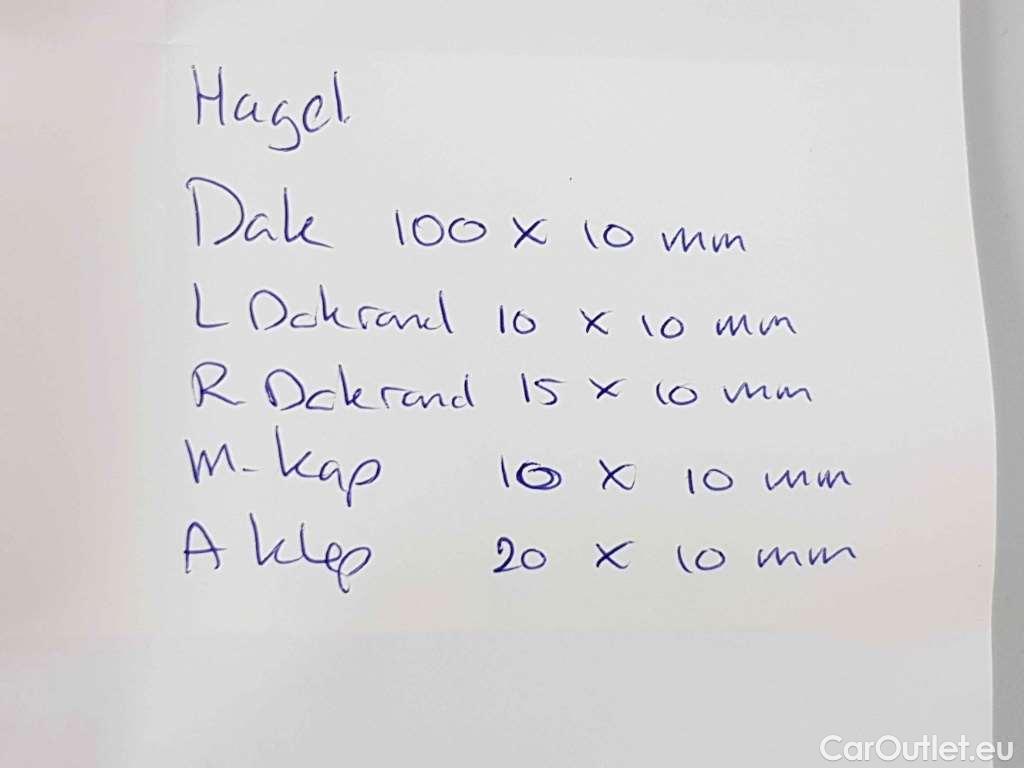 Hagel
Dak 100 x 10 mm
L Dakrand 10 x 10 mm
R Dakrand 15 x 10 mm
M-kap 10 x 10 mm
A klep 20 x 10 mm
CarOutlet.eu